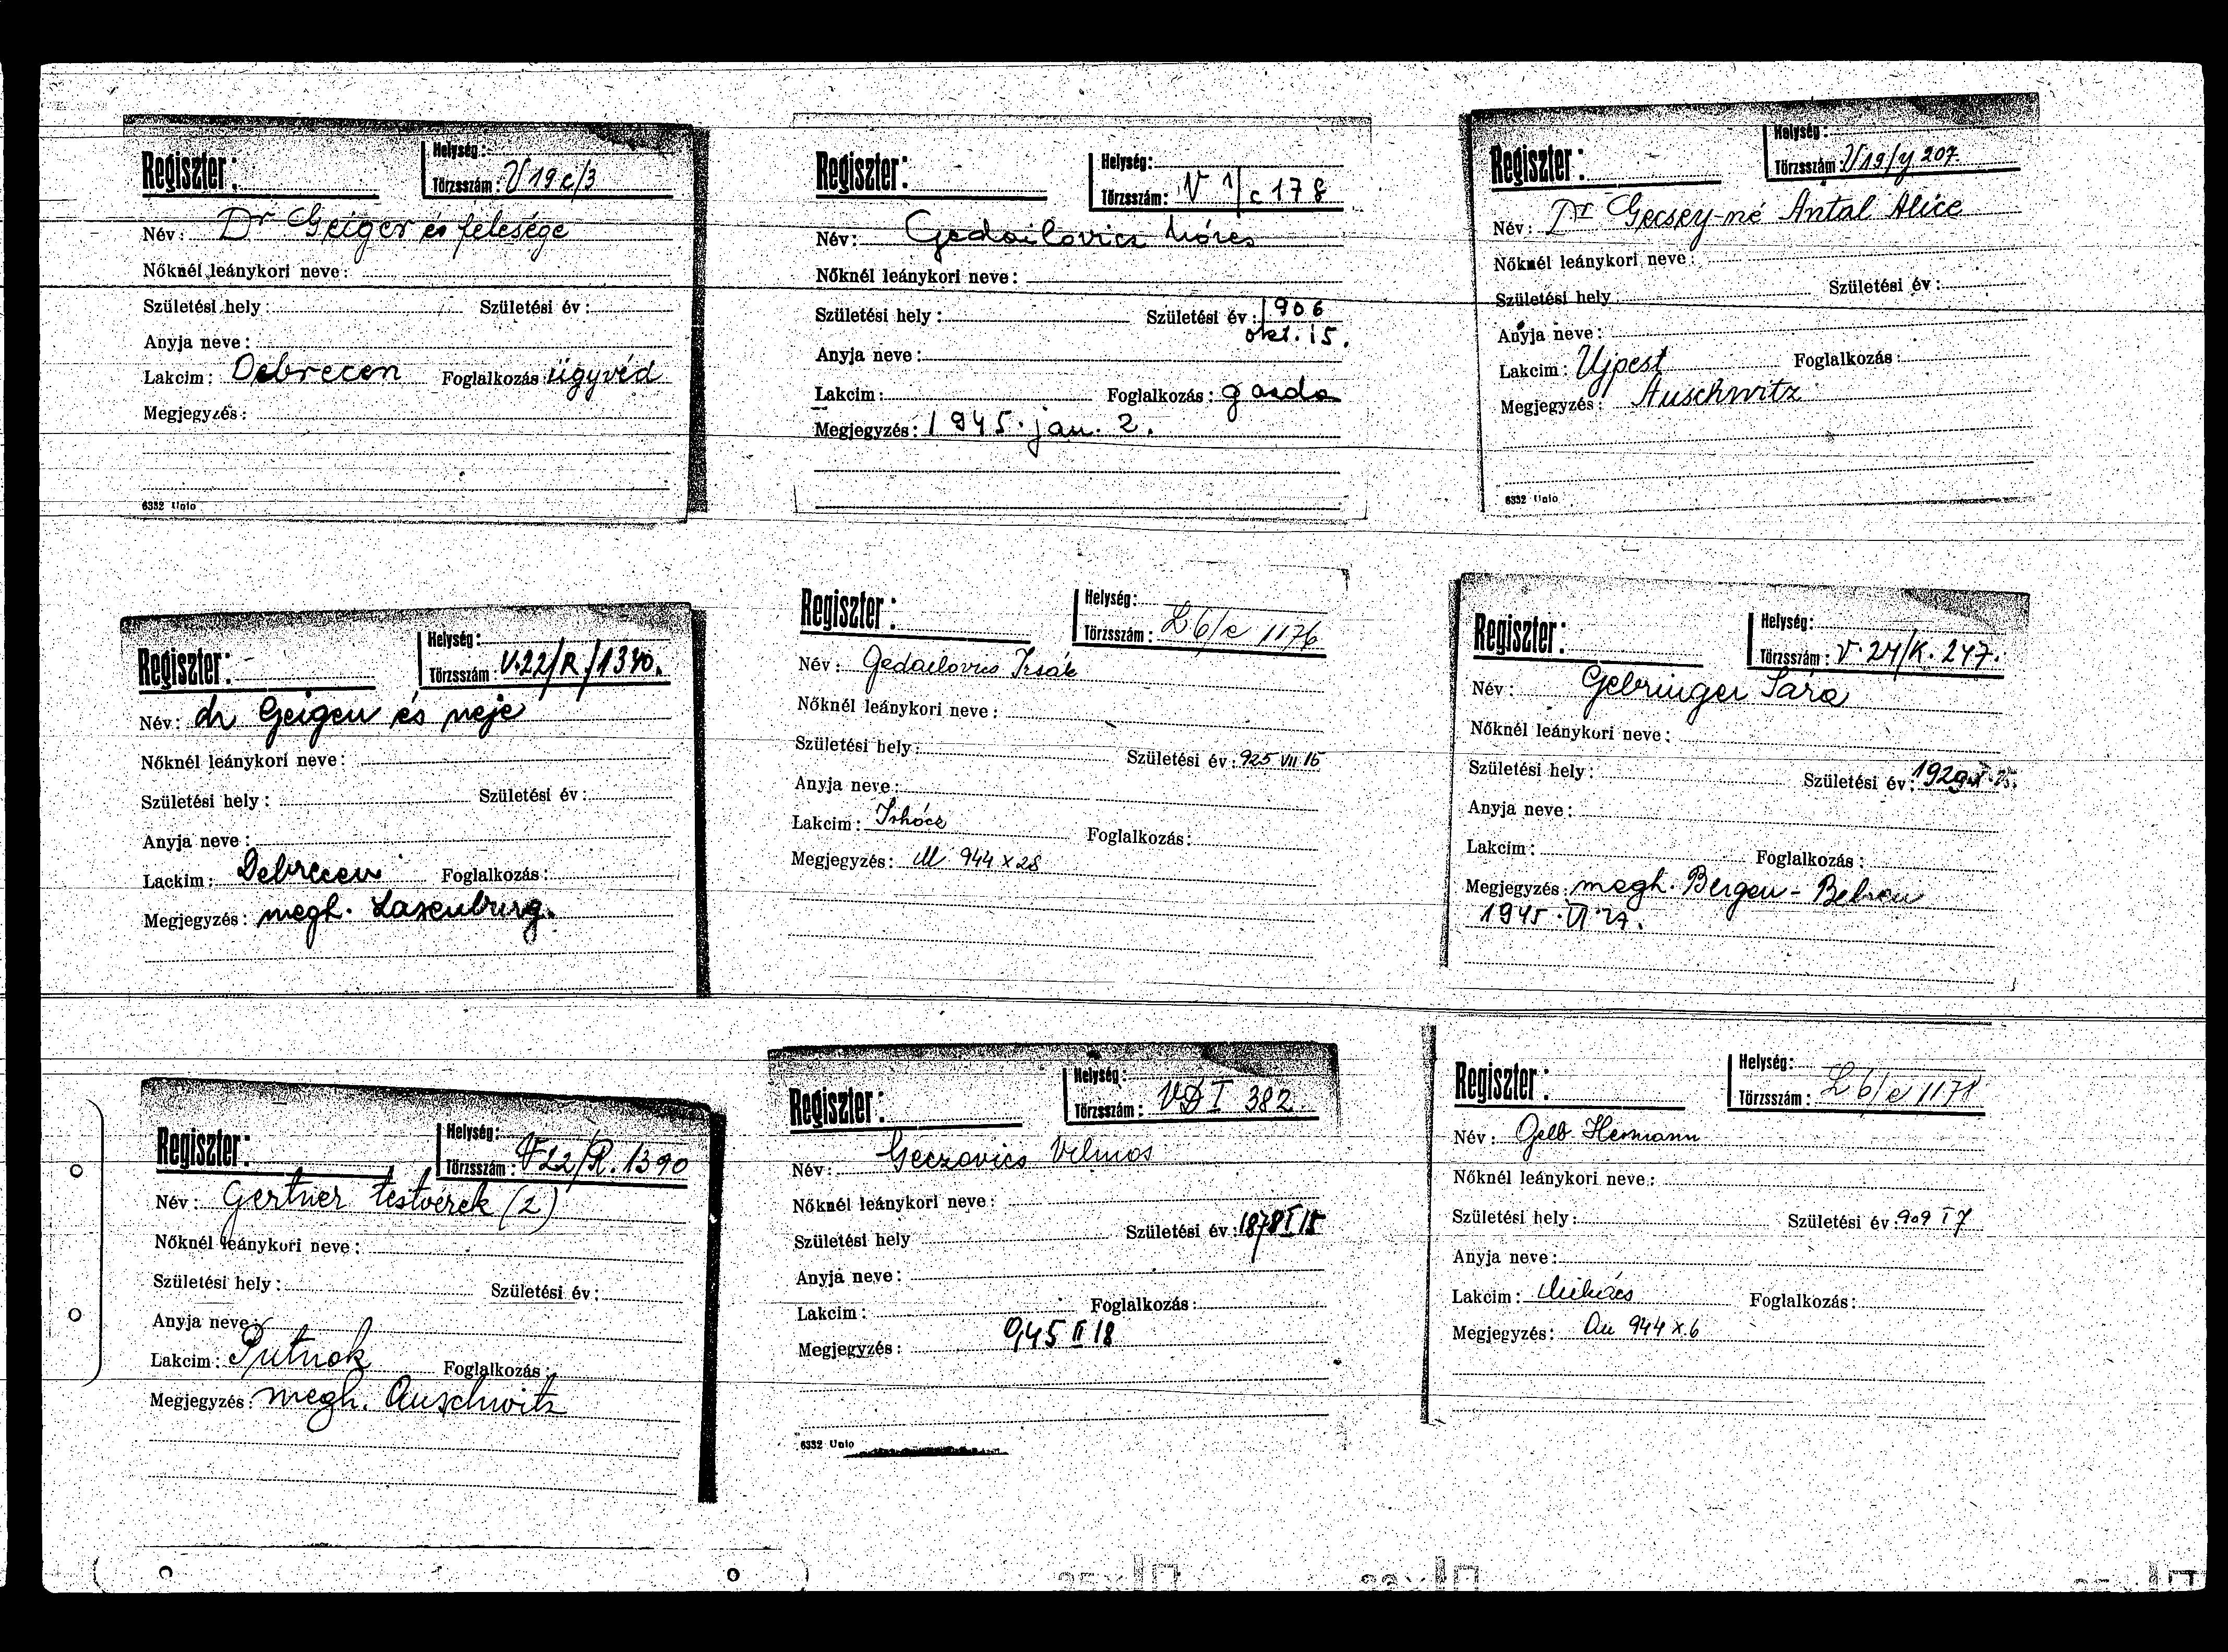 Regiszter:
Helység:
Törzsszám: V 19 c/3
Név: Dr Geiger és felesége
Nőknél leánykori neve:
Születési hely: Születési év:
Anyja neve:
Lakcim: Debrecen Foglalkozás: ügyvéd
Megjegyzés:
6332 Unio
Regiszter:
Helység:
Törzsszám: V 1/c 178
Név: Gedailovics Móres
Nőknél leánykori neve:
Születési hely: Születési év: 1906
okt. 15.
Anyja neve:
Lakcim: Foglalkozás: gazda
Megjegyzés: 1945. jan. 2.
Regiszter:
Helység:
Törzsszám: V19/y 207
Név: Dr Gecsey-né Antal Alice
Nőknél leánykori neve:
Születési hely Születési év:
Anyja neve:
Lakcim: Ujpest Foglalkozás:
Megjegyzés: Auschwitz
6332 Unio
Regiszter:
Helység:
Törzsszám: V.22/R./1340.
Név: dr Geigen és neje
Nőknél leánykori neve:
Születési hely: Születési év:
Anyja neve:
Lackim: Debrecen Foglalkozás:
Megjegyzés: megh. Laxenburg.
Regiszter:
Helység:
Törzsszám: L6/e 1176
Név: Gedailovics Izsák
Nőknél leánykori neve:
Születési hely: Születési év: 925 VII 15
Anyja neve:
Lakcim: Irhócz Foglalkozás:
Megjegyzés: M 944 X 28
Regiszter:
Helység:
Törzsszám: V. 24/K. 247.
Név: Gebringer Sára
Nőknél leánykori neve:
Születési hely: Születési év: 1929.
Anyja neve:
Lakcim: Foglalkozás:
Megjegyzés: megh. Bergen-Belsen
1945. VI. 27.
Regiszter:
Helység:
Törzsszám: V22/R. 1390
Név: Gertner testverek (2)
Nőknél leánykori neve:
Születési hely: Születési év:
Anyja neve:
Lakcim: Putnok Foglalkozás:
Megjegyzés: megh. Auschwitz
Regiszter:
Helység:
Törzsszám: VD I 382
Név: Geczovics Vilmos
Nőknél leánykori neve:
Születési hely Születési év: 1878 I 15
Anyja neve:
Lakcim: Foglalkozás:
Megjegyzés: 945 II 18
6332 Unio
Regiszter:
Helység:
Törzsszám: L6/e 1178
Név: Gelb Hermann
Nőknél leánykori neve:
Születési hely: Születési év: 909 I 7
Anyja neve:
Lakcim: Foglalkozás:
Megjegyzés: Au 944 X. 6